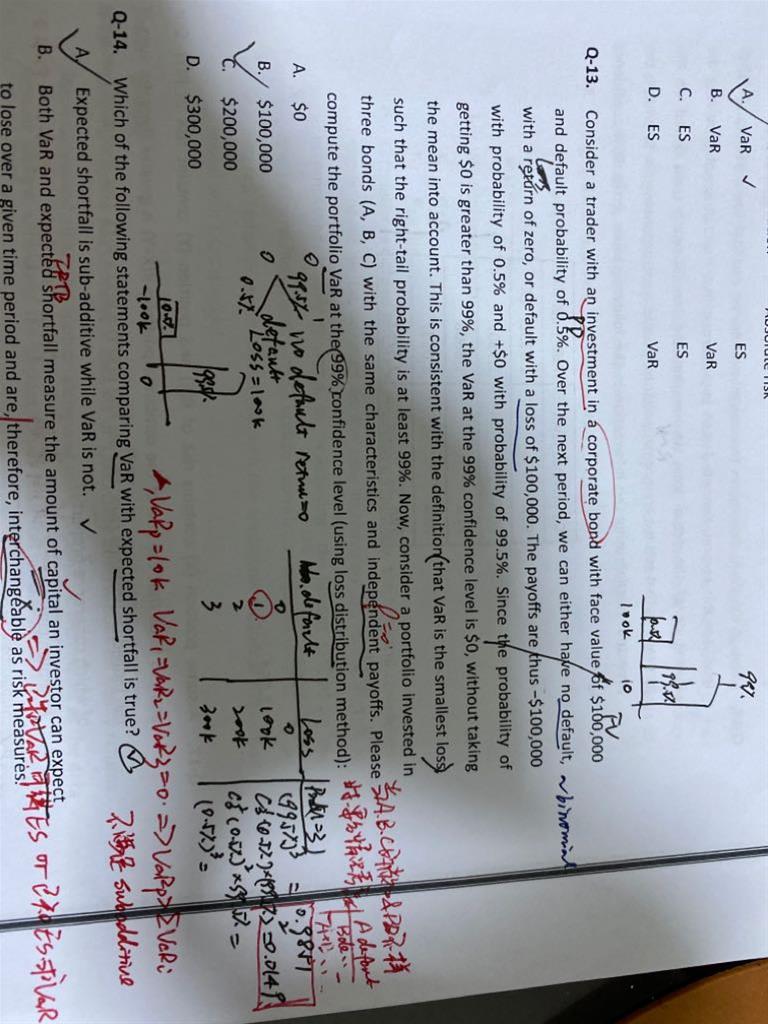 A. VaR ✓ ES
B. VaR VaR
C. ES ES
D. ES VaR
99%
99.5%
100k 0
Q-13. Consider a trader with an investment in a corporate bond with face value of $100,000
and default probability of 0.5%. Over the next period, we can either have no default, ~binomial
PD
FV
with a return of zero, or default with a loss of $100,000. The payoffs are thus -$100,000
loss
with probability of 0.5% and +$0 with probability of 99.5%. Since the probability of
getting $0 is greater than 99%, the VaR at the 99% confidence level is $0, without taking
the mean into account. This is consistent with the definition that VaR is the smallest loss
such that the right-tail probability is at least 99%. Now, consider a portfolio invested in
three bonds (A, B, C) with the same characteristics and independent payoffs. Please
ρ=0
compute the portfolio VaR at the 99% confidence level (using loss distribution method):
A. $0
B. $100,000
C. $200,000
D. $300,000
99.5% no default return=0
0
default Loss=100k
0.5%
-100k 0
99.5%
No. default Loss
0 0 (99.5%)³ = 0.9851
1 100k
2 200k
3 300k (0.5%)³ =
=0.0149
A default
VaR₁=VaR₂=VaR₃=0. => VaRp>ΣVaRi
不满足 subadditive
Q-14. Which of the following statements comparing VaR with expected shortfall is true?
A. Expected shortfall is sub-additive while VaR is not. ✓
B. Both VaR and expected shortfall measure the amount of capital an investor can expect
to lose over a given time period and are, therefore, interchangeable as risk measures.